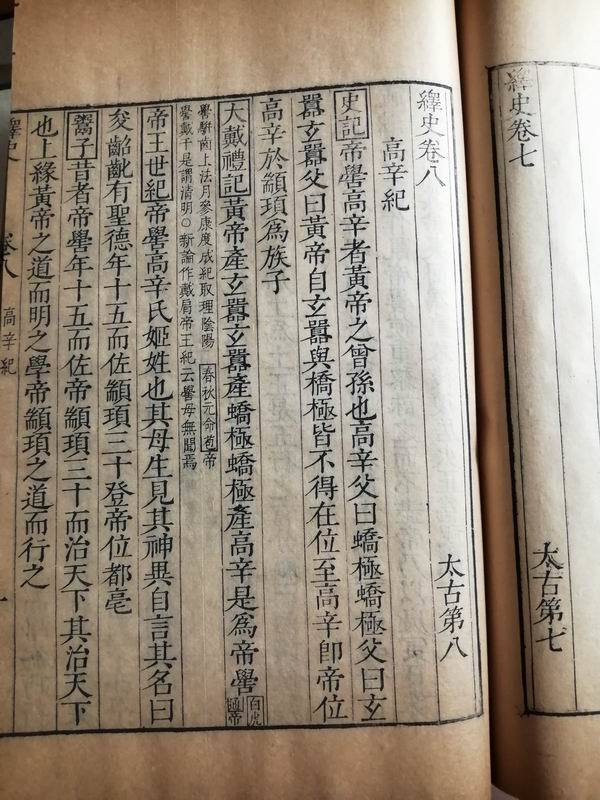 繹史卷七
太古第七
繹史卷八 太古第八
高辛紀
史記帝嚳高辛者黃帝之曾孫也高辛父曰蟜極蟜極父曰玄
囂玄囂父曰黃帝自玄囂與橋極皆不得在位至高辛卽帝位
高辛於顓頊爲族子
大戴禮記黃帝產玄囂玄囂產蟜極蟜極產高辛是爲帝嚳
白虎
通帝
嚳駢齒上法月參康度成紀取理陰陽春秋元命苞帝
嚳戴干是謂清明○新論作戴肩帝王紀云嚳母無聞焉
帝王世紀帝嚳高辛氏姬姓也其母生見其神異自言其名曰
夋齠齔有聖德年十五而佐顓頊三十登帝位都亳
鬻子昔者帝嚳年十五而佐帝顓頊三十而治天下其治天下
也上緣黃帝之道而明之學帝顓頊之道而行之
繹史 卷八 高辛紀 一